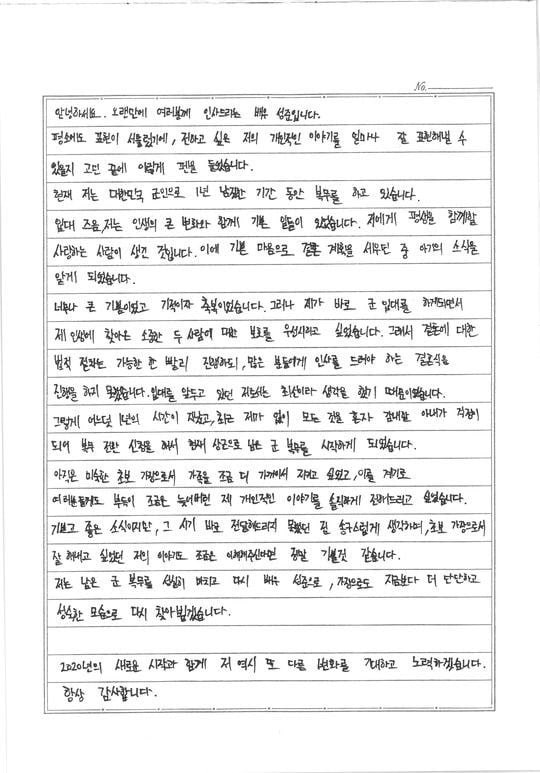 No.
안녕하세요. 오랜만에 여러분께 인사드리는 배우 성준입니다.
평소에도 표현이 서툴렀기에, 전하고 싶은 저의 개인적인 이야기를 얼마나 잘 표현해낼 수
있을지 고민 끝에 이렇게 펜을 들었습니다.
현재 저는 대한민국 군인으로 1년 남짓한 기간 동안 복무를 하고 있습니다.
입대 즈음, 저는 인생의 큰 변화와 함께 기쁜 일들이 있었습니다. 저에게 평생을 함께할
사랑하는 사람이 생긴 것입니다. 이에 기쁜 마음으로 결혼 계획을 세우던 중 아기의 소식을
알게 되었습니다.
너무나 큰 기쁨이었고 기적이자 축복이었습니다. 그러나 제가 바로 군 입대를 하게되면서
제 인생에 찾아온 소중한 두 사람에 대한 보호를 우선시하고 싶었습니다. 그래서 결혼에 대한
법적 절차는 가능한 한 빨리 진행하되, 많은 분들에게 인사를 드려야 하는 결혼식을
진행을 하지 못했습니다. 입대를 앞두고 있던 저로서는 최선이라 생각을 했기 때문이었습니다.
그렇게 어느덧 1년의 시간이 지났고, 최근 저마저 없이 모든 것을 혼자 감내할 아내가 걱정이
되어 복무 전환 신청을 해서 현재 상근으로 남은 군 복무를 시작하게 되었습니다.
아직은 미숙한 초보 가장으로서 가족을 조금 더 가까이서 지키고 싶었고, 이를 계기로
여러분들께도 부득이 조금은 늦어버린 제 개인적인 이야기를 솔직하게 전해드리고 싶었습니다.
기쁘고 좋은 소식이지만, 그 시기 바로 전달해드리지 못했던 점 송구스럽게 생각하며, 초보 가장으로서
잘 해내고 싶었던 저의 이야기도 조금은 이해해주신다면 정말 기쁠것 같습니다.
저는 남은 군 복무를 성실히 마치고 다시 배우 성준으로, 가장으로도 지금보다 더 단단하고
성숙한 모습으로 다시 찾아뵙겠습니다.
2020년의 새로운 시작과 함께 저 역시 또 다른 변화를 기대하고 노력하겠습니다.
항상 감사합니다.